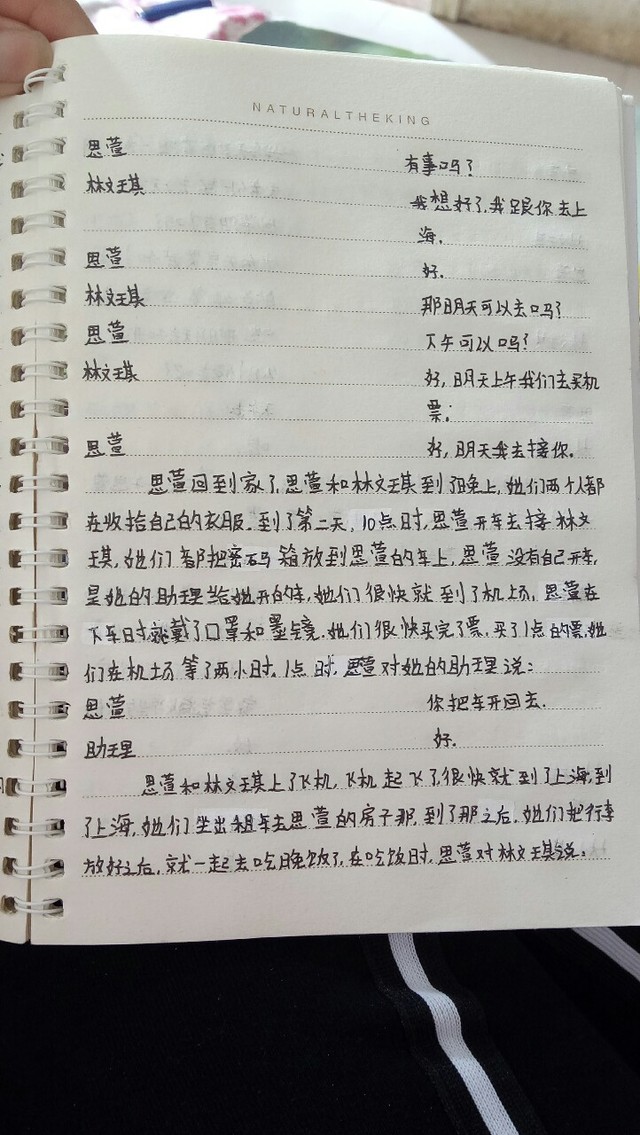 NATURALTHEKING
思萱 有事吗?
林文琪 我想好了,我跟你去上
海.
思萱 好.
林文琪 那明天可以去吗?
思萱 下午可以吗?
林文琪 好,明天上午我们去买机
票;
思萱 好,明天我去接你.
思萱回到家了,思萱和林文琪到了晚上,她们两个人都
在收拾自己的衣服.到了第二天,10点时,思萱开车去接林文
琪,她们都把密码箱放到思萱的车上,思萱没有自己开车,
是她的助理给她开的车,她们很快就到了机场,思萱在
下车日时就戴了口罩和墨镜.她们很快买完了票,买了1点的票,她
们在机场等了两小时.1点时,思萱对她的助理说:
思萱 你把车开回去.
助理 好.
思萱和林文琪上了飞机,飞机起飞了,很快就到了上海,到
了上海,她们坐出租车去思萱的房子那,到了那之后,她们把行李
放好之后,就一起去吃晚饭了,在吃饭时,思萱对林文琪说: